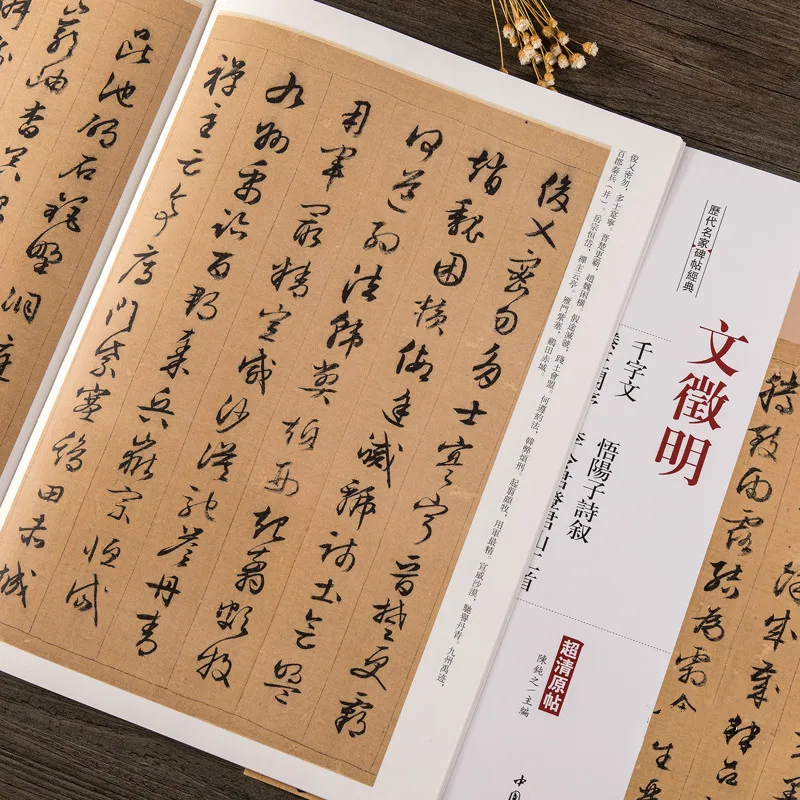 歷代名家碑帖經典
文徵明
千字文
悟陽子詩叙
超清原帖
陳鈍之／主編
俊乂密勿，多士寔寧。晉楚更霸，趙魏困橫。假途滅虢，踐土會盟。何遵約法，韓弊煩刑。起翦頗牧，用軍最精。宣威沙漠，馳譽丹青。九州禹迹，
百郡秦兵（并）。岳宗恒岱，禪主云亭。雁門紫塞，鷄田赤城。
俊乂密勿多士寔寧晉楚更霸
趙魏困橫假途滅虢踐土會盟
何遵約法韓弊煩刑起翦頗牧
用軍最精宣威沙漠馳譽丹青
九州禹跡百郡秦兵嶽宗恒岱
禪主云亭雁門紫塞鷄田赤城
昆池碣石鉅野洞庭
巖岫杳冥
騰致雨露結為霜金